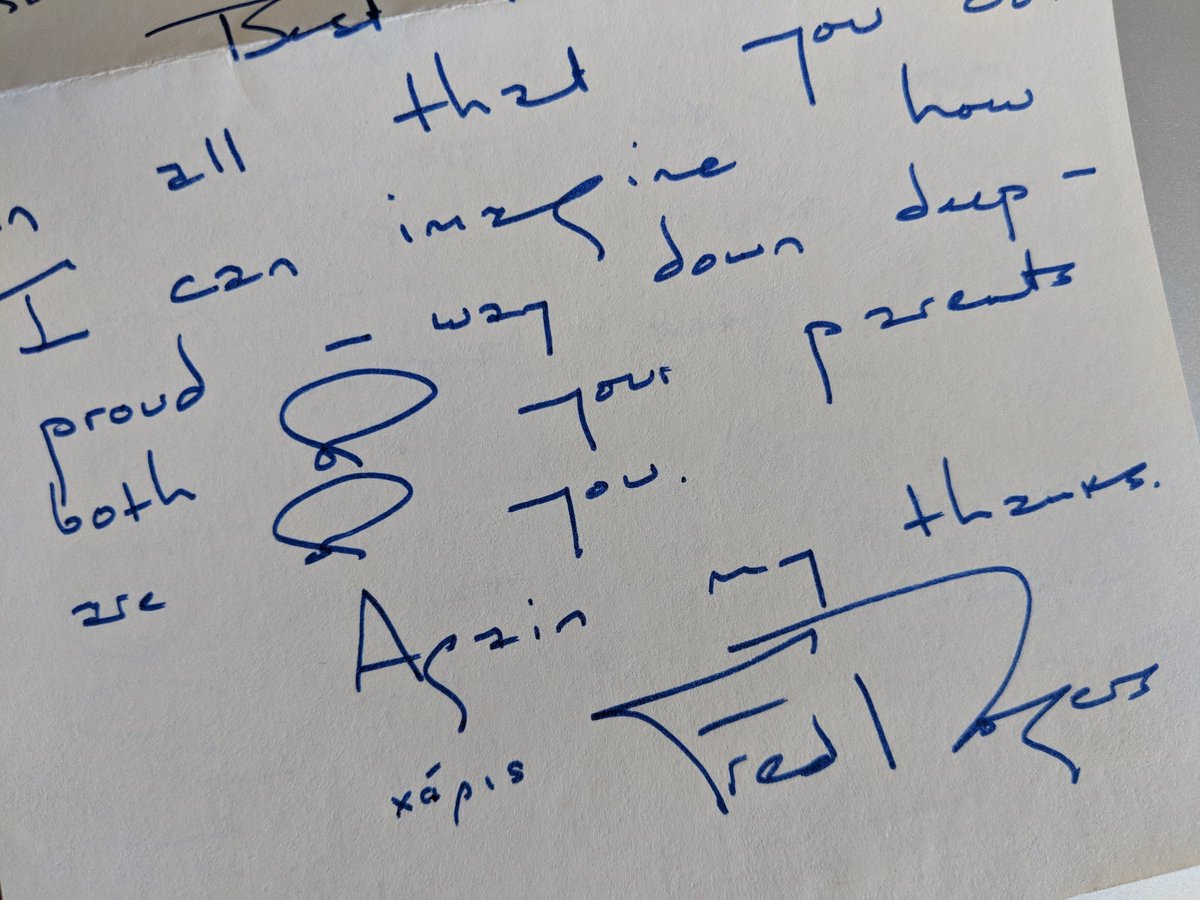 Best
in all that you
I can imagine how
proud – way down deep –
both of your parents
are of you.
Again my thanks.
Fred Rogers
χάρις